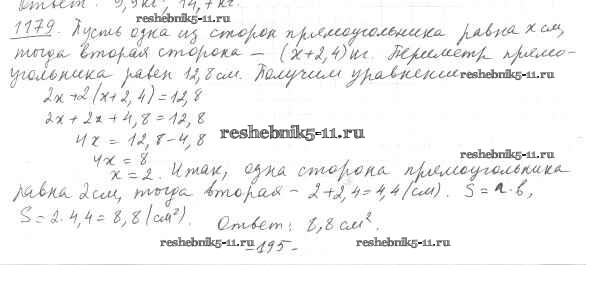 Ответ: 9,9 кг, 14,7 кг.
reshebnik5-11.ru
1179. Пусть одна из сторон прямоугольника равна x см,
тогда вторая сторона – (x+2,4) кг. Периметр прямо-
угольника равен 12,8 см. Получим уравнение reshebnik5-11.ru
2x+2(x+2,4)=12,8
2x+2x+4,8=12,8
4x = 12,8-4,8 reshebnik5-11.ru
4x = 8 reshebnik5-11.ru
x = 2. Итак, одна сторона прямоугольника
равна 2см, тогда вторая – 2+2,4=4,4 (см). S = a·b,
S = 2·4,4 = 8,8 (см²). Ответ: 8,8 см².
reshebnik5-11.ru -195- reshebnik5-11.ru